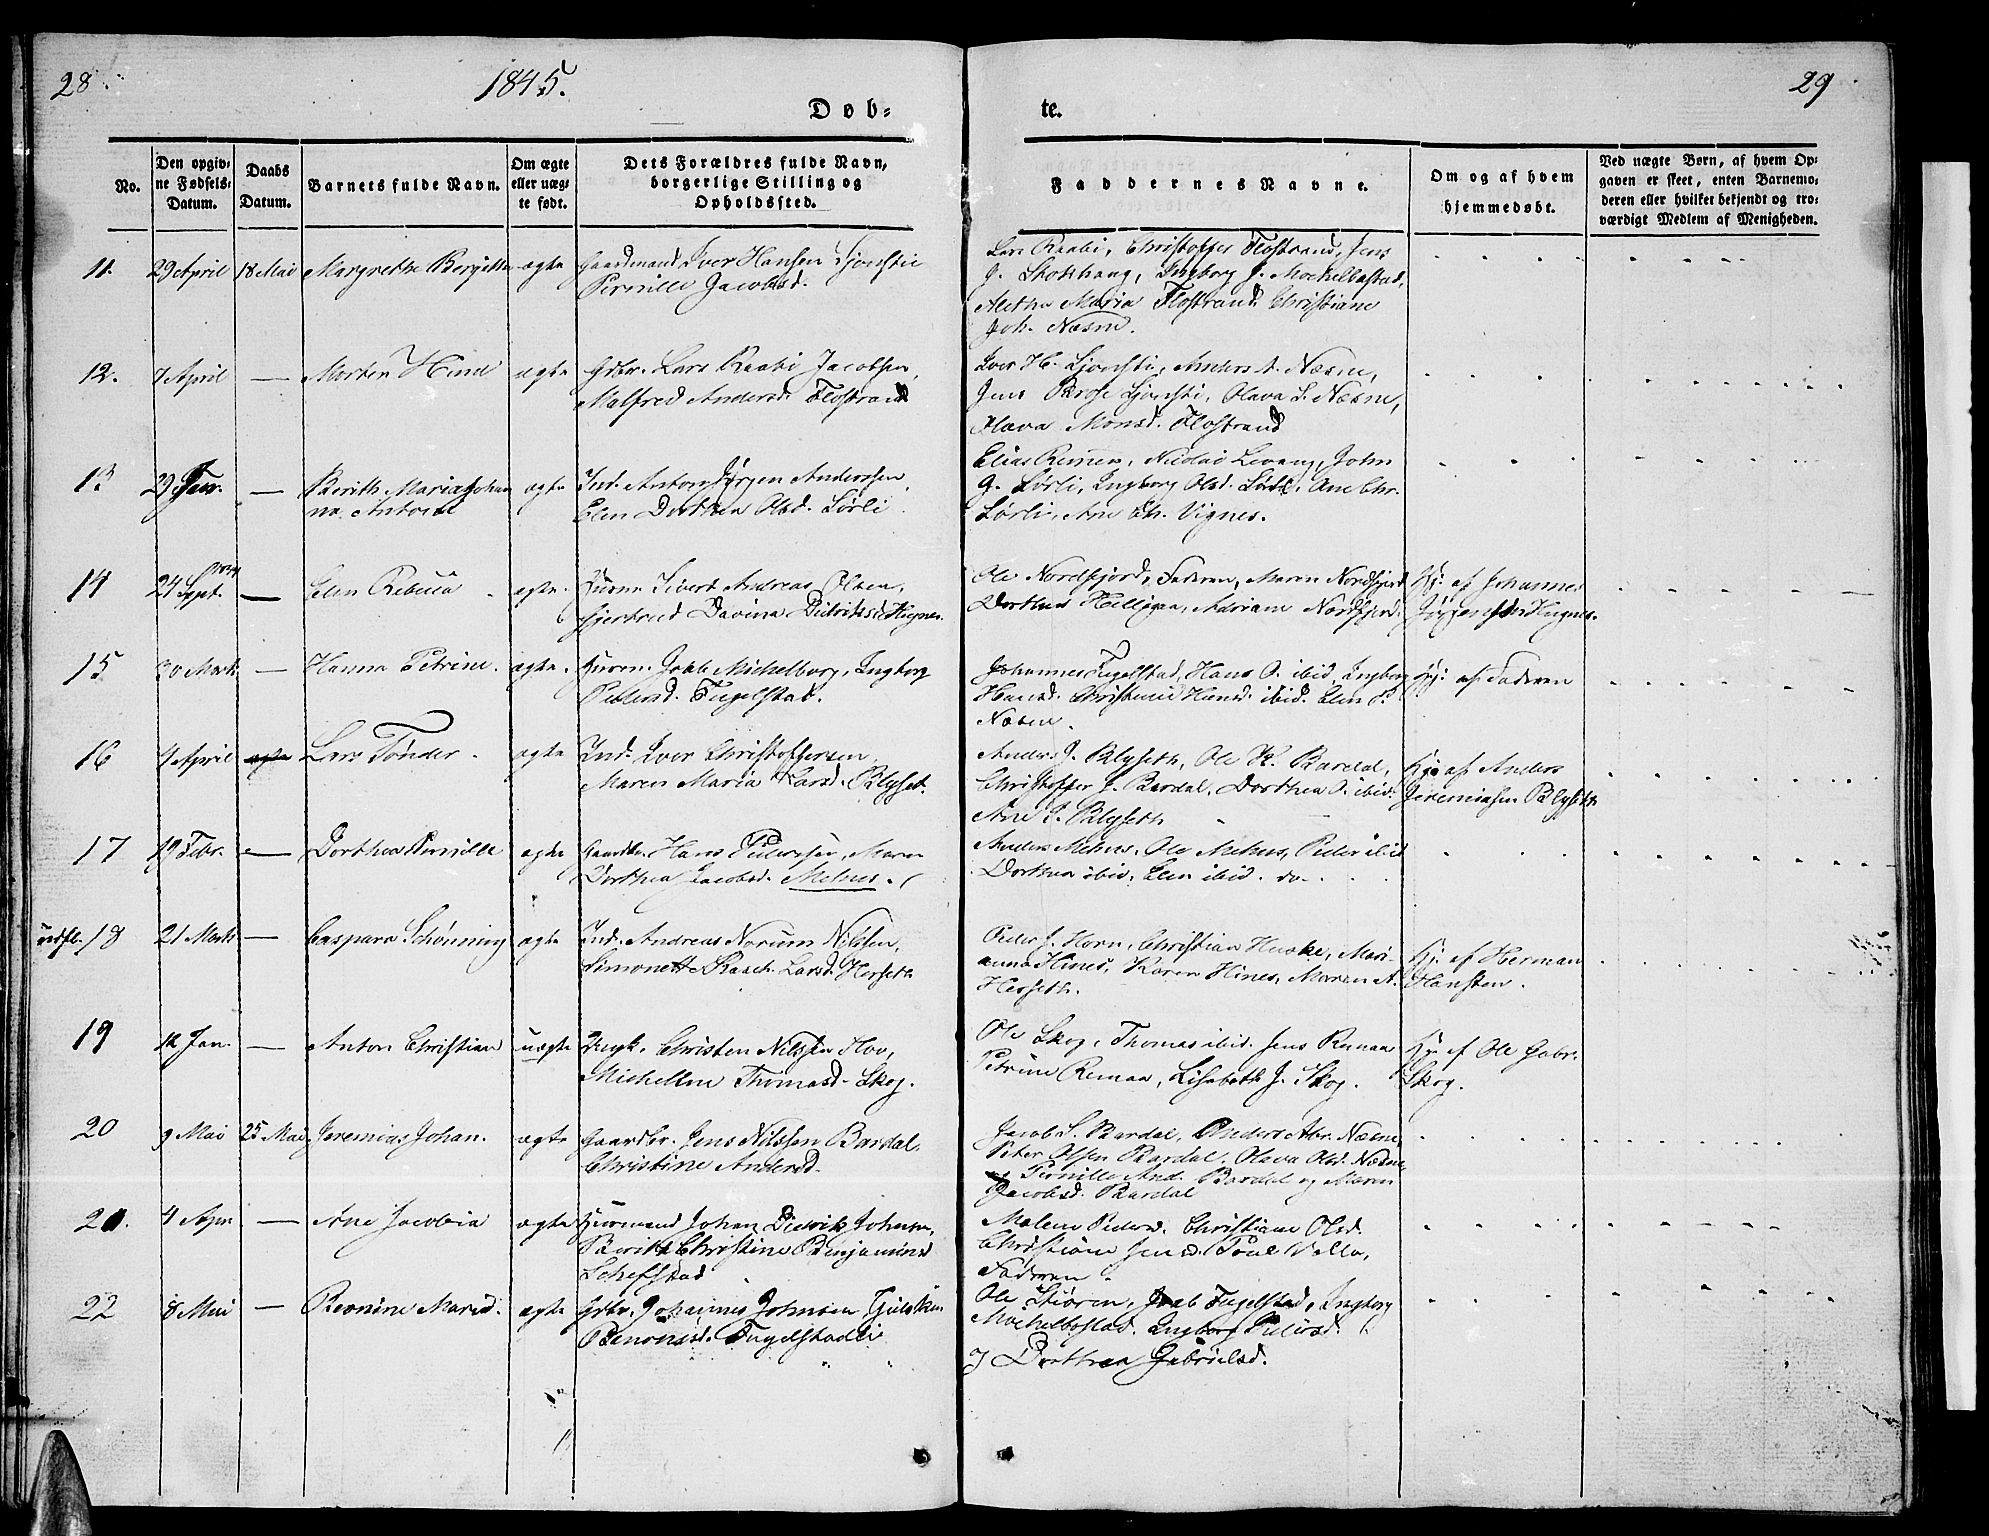 28
1845.
29
Døb=
te.
No.
Den opgiv=
ne Fødsels=
Datum.
Daabs
Datum.
Barnets fulde Navn.
Om ægte
eller uæg=
te født.
Dets Forældres fulde Navn,
borgerlige Stilling og
Opholdssted.
Faddernes Navne.
Om og af hvem
hjemmedøbt.
Ved uægte Børn, af hvem Op=
gaven er skeet, enten Barnemo=
deren eller hvilket bekjendt og tro=
værdigt Medlem af Menigheden.
11. 29 April 18 Mai Margrethe Bergitte ægte Gaardmand Iver Hansen Sjonstie
Pernille Jacobsd.
Lars Raabi, Christoffer Flostrand, Jens
J. Skokhaug, Ingborg J. Mechelbostad,
Alethe Maria Flostrand, Christiane
Joh. Næsne.
12. 7 April — Morten Hind ægte Grbr. Lars Raabi Jacobsen,
Malfred Andersd. Flostrand
Iver H. Sjonsti, Anders A. Næsne,
Jens Brose Sjonsti, Olava L. Næsne,
Olava Monsd. Flostrand
13 29 Jan. — Berith Maria Johan
na Antonia ægte Ind. Anton Jørgen Anderssen,
Elen Dorthea Olsd. Sørli
Elias Remen, Nicolai Levang, John
G. Sørli, Ingborg Olsd. Sørli, Ane Chr.
Sørli, Ane Ch. Vignes.
14 24 Sept. 1844 — Elen Rebecca ægte Huusm. Sivert Andreas Olsen,
Gjertrud Davina Didriksd. Hugnes.
Ole Nordfjord, Faderen, Maren Nordfjord
Dorthea Helligen, Adriane Nordfjord.
Hj: af Johannes
Jørgensen Hugnes.
15 30 Marts — Hanna Petrine ægte Huusm. Jakb Michelborg, Ingborg
Pedersd. Fugelstad.
Johannes Fugelstad, Hans O. ibid, Ingborg
Hansd. Christine Hansd. ibid. Elen P.
Næsne.
Hj: af Faderen
16 4 April ægte Lars Tønder ægte Ind. Iver Christoffersen,
Maren Maria Larsd. Blyset.
Anders J. Blyseth, Ole K. Bardal,
Christoffer J. Bardal, Dorthea O. ibid.
Ane I. Blyseth
Hj: af Anders
Jeremiasen Blyseth
17 19 Febr. — Dorthea Pernille ægte Gaardbr. Hans Pedersen, Maren
Dorthea Jacobsd. Melnes.
Anders Melnes, Ole Melnes, Peder ibid
Dorthea ibid, Elen ibid. do
indfl. 18 21 Marts — Caspara Schønning ægte Ind. Andreas Norum Nilssen,
Simonette Rasch. Larsd. Herseth
Peder J. Horn, Christian Huske, Mari-
anna Hines, Karen Hines, Maren A.
Herseth.
Hj: af Herman
Hansten.
19 12 Jan. — Anton Christian uægte Ungk. Christen Nilssen Hov,
Michelline Thomasd. Skog.
Ole Skog, Thomas ibid. Jens Reman
Petrine Reman, Lisabeth J. Skog.
Hj: af Ole Gabr.
Skog.
20 9 Mai 25 Mai Jeremias Johan. ægte Gaardbr. Jens Nilssen Bardal,
Christine Andersd.
Jacob S. Bardal, Anders Abr. Næsne,
Peter Olsen Bardal, Olava Olsd. Næsne
og Pernille And. Bardal og Maren
Jacobsd. Bardal
21. 4 Apr. — Ane Jacobia ægte Huusmand Johan Didrik Johnsen,
Berit Christine Benjaminsd
Schefstad
Malene Pedersd. Christiane Olsd.
Christiane Jensd. Poul Valla,
Faderen
22 8 Mai — Benonine Marie ægte Grbr. Johannes Johnsen Tjulskin
Benonisd. Fugelstadli
Ole Stioren, Jacob Fugelstad, Ingborg
Mechelbostad, Ingborg Pedersd.
Dorthea Gabrielsd.